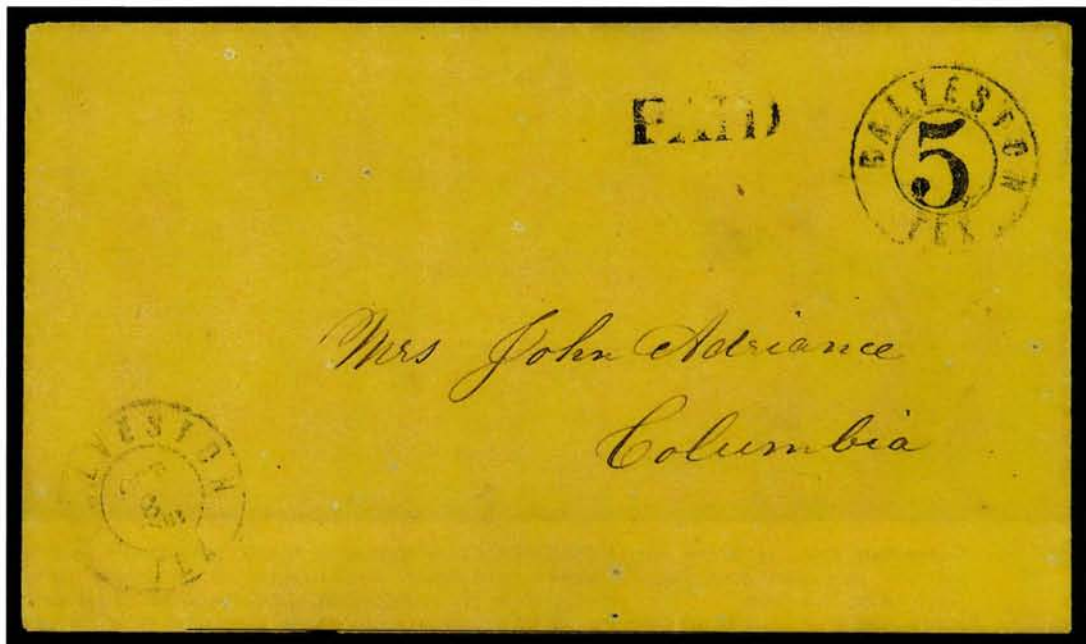 PAID
GALVESTON
5
TEX
Mrs John Adriance
Columbia
GALVESTON
TEX